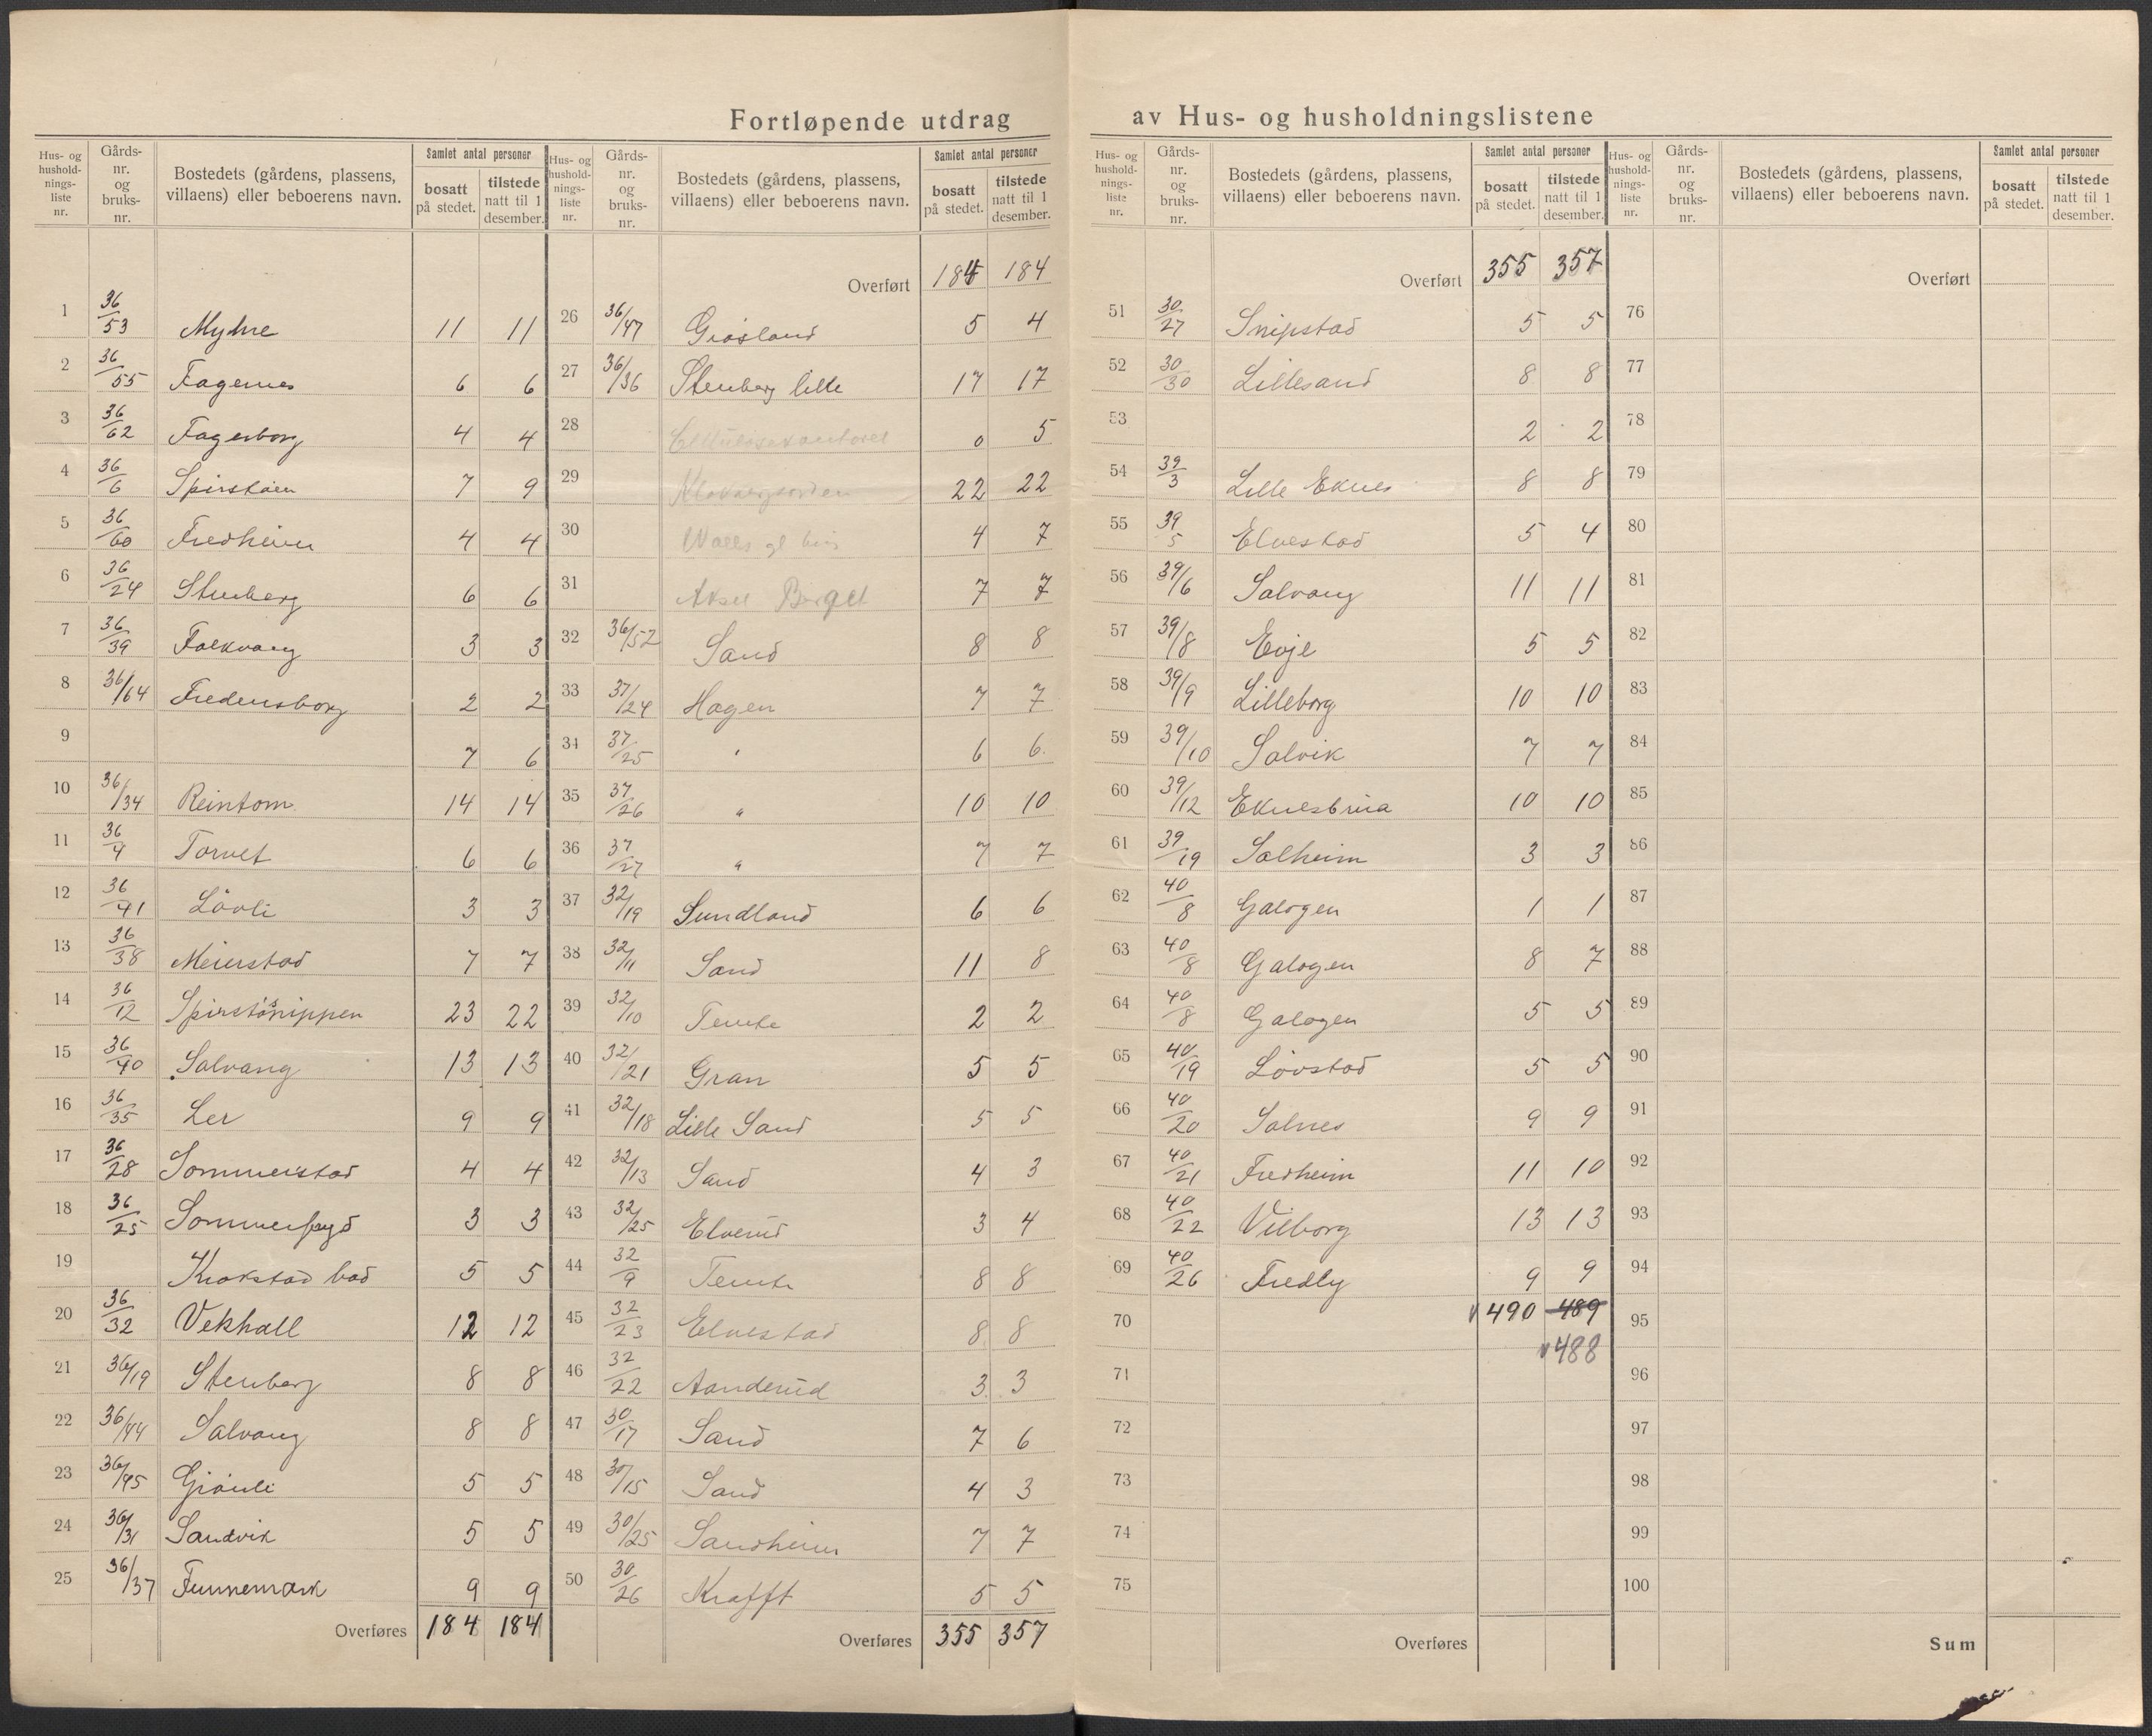 Fortløpende utdrag av Hus- og husholdningslistene
Hus- og husholdnings- liste nr. | Gårds- nr. og bruks- nr. | Bostedets (gårdens, plassens, villaens) eller beboerens navn. | Samlet antal personer | bosatt på stedet. | tilstede natt til 1 desember.
1 36/53 Myhre 11 11
2 36/55 Fagernes 6 6
3 36/62 Fagerborg 4 4
4 36/6 Spirstøen 7 9
5 36/60 Fredheim 4 4
6 36/24 Stenberg 6 6
7 36/39 Folkvang 3 3
8 36/64 Fredensborg 2 2
9 7 6
10 36/34 Reintom 14 14
11 36/4 Torvet 6 6
12 36/41 Lövli 3 3
13 36/38 Meierstad 7 7
14 36/12 Spirstösnippen 23 22
15 36/40 Solvang 13 13
16 36/35 Ler 9 9
17 36/28 Sommerstad 4 4
18 36/25 3 3
19 Krokstad bad 5 5
20 36/32 Vekhall 12 12
21 36/19 Stenberg 8 8
22 36/44 Solvang 8 8
23 36/45 5 5
24 36/31 Sandvik 5 5
25 36/37 Funnemark 9 9
Overføres 184 184
Hus- og husholdnings- liste nr. | Gårds- nr. og bruks- nr. | Bostedets (gårdens, plassens, villaens) eller beboerens navn. | Samlet antal personer | bosatt på stedet. | tilstede natt til 1 desember.
Overført 184 184
26 36/47 Grosland 5 4
27 36/36 Stenberg lille 17 17
28 0 5
29 22 22
30 4 7
31 7 7
32 36/52 Sand 8 8
33 37/24 Hagen 7 7
34 37/25 " 6 6
35 37/26 " 10 10
36 37/27 " 7 7
37 32/19 Sundland 6 6
38 32/11 Sand 11 8
39 32/10 Temte 2 2
40 32/21 Gran 5 5
41 32/18 Lille Sand 5 5
42 32/13 Sand 4 3
43 32/25 Elverud 3 4
44 32/9 Temte 8 8
45 32/23 Elvestad 8 8
46 32/22 Aanderud 3 3
47 30/17 Sand 7 6
48 30/15 Sand 4 3
49 30/25 Sandheim 7 7
50 30/26 Krafft 5 5
Overføres 355 357
Hus- og husholdnings- liste nr. | Gårds- nr. og bruks- nr. | Bostedets (gårdens, plassens, villaens) eller beboerens navn. | Samlet antal personer | bosatt på stedet. | tilstede natt til 1 desember.
Overført 355 357
51 30/27 Snipstad 5 5
52 30/30 Lillesand 8 8
53 2 2
54 39/3 Lille Eknes 8 8
55 39/5 Elvestad 5 4
56 39/6 Solvang 11 11
57 39/8 Evje 5 5
58 39/9 Lilleborg 10 10
59 39/10 Solvik 7 7
60 39/12 Eknesbrua 10 10
61 39/19 Solheim 3 3
62 40/8 Galogen 1 1
63 40/8 Galogen 8 7
64 40/8 Galogen 5 5
65 40/19 Lövstad 5 5
66 40/20 Solnes 9 9
67 40/21 Fredheim 11 10
68 40/22 Vilborg 13 13
69 40/26 Fredly 9 9
70 490 489
488
71
72
73
74
75
Overføres
Hus- og husholdnings- liste nr. | Gårds- nr. og bruks- nr. | Bostedets (gårdens, plassens, villaens) eller beboerens navn. | Samlet antal personer | bosatt på stedet. | tilstede natt til 1 desember.
Overført
76
77
78
79
80
81
82
83
84
85
86
87
88
89
90
91
92
93
94
95
96
97
98
99
100
Sum